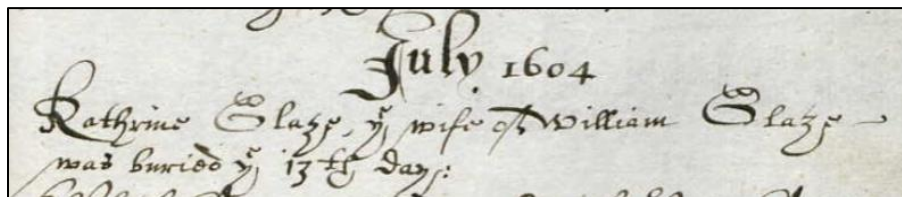 July 1604
Kathrine Slatze, yᵉ wife of William Slatze
was buried yᵉ 13th day: